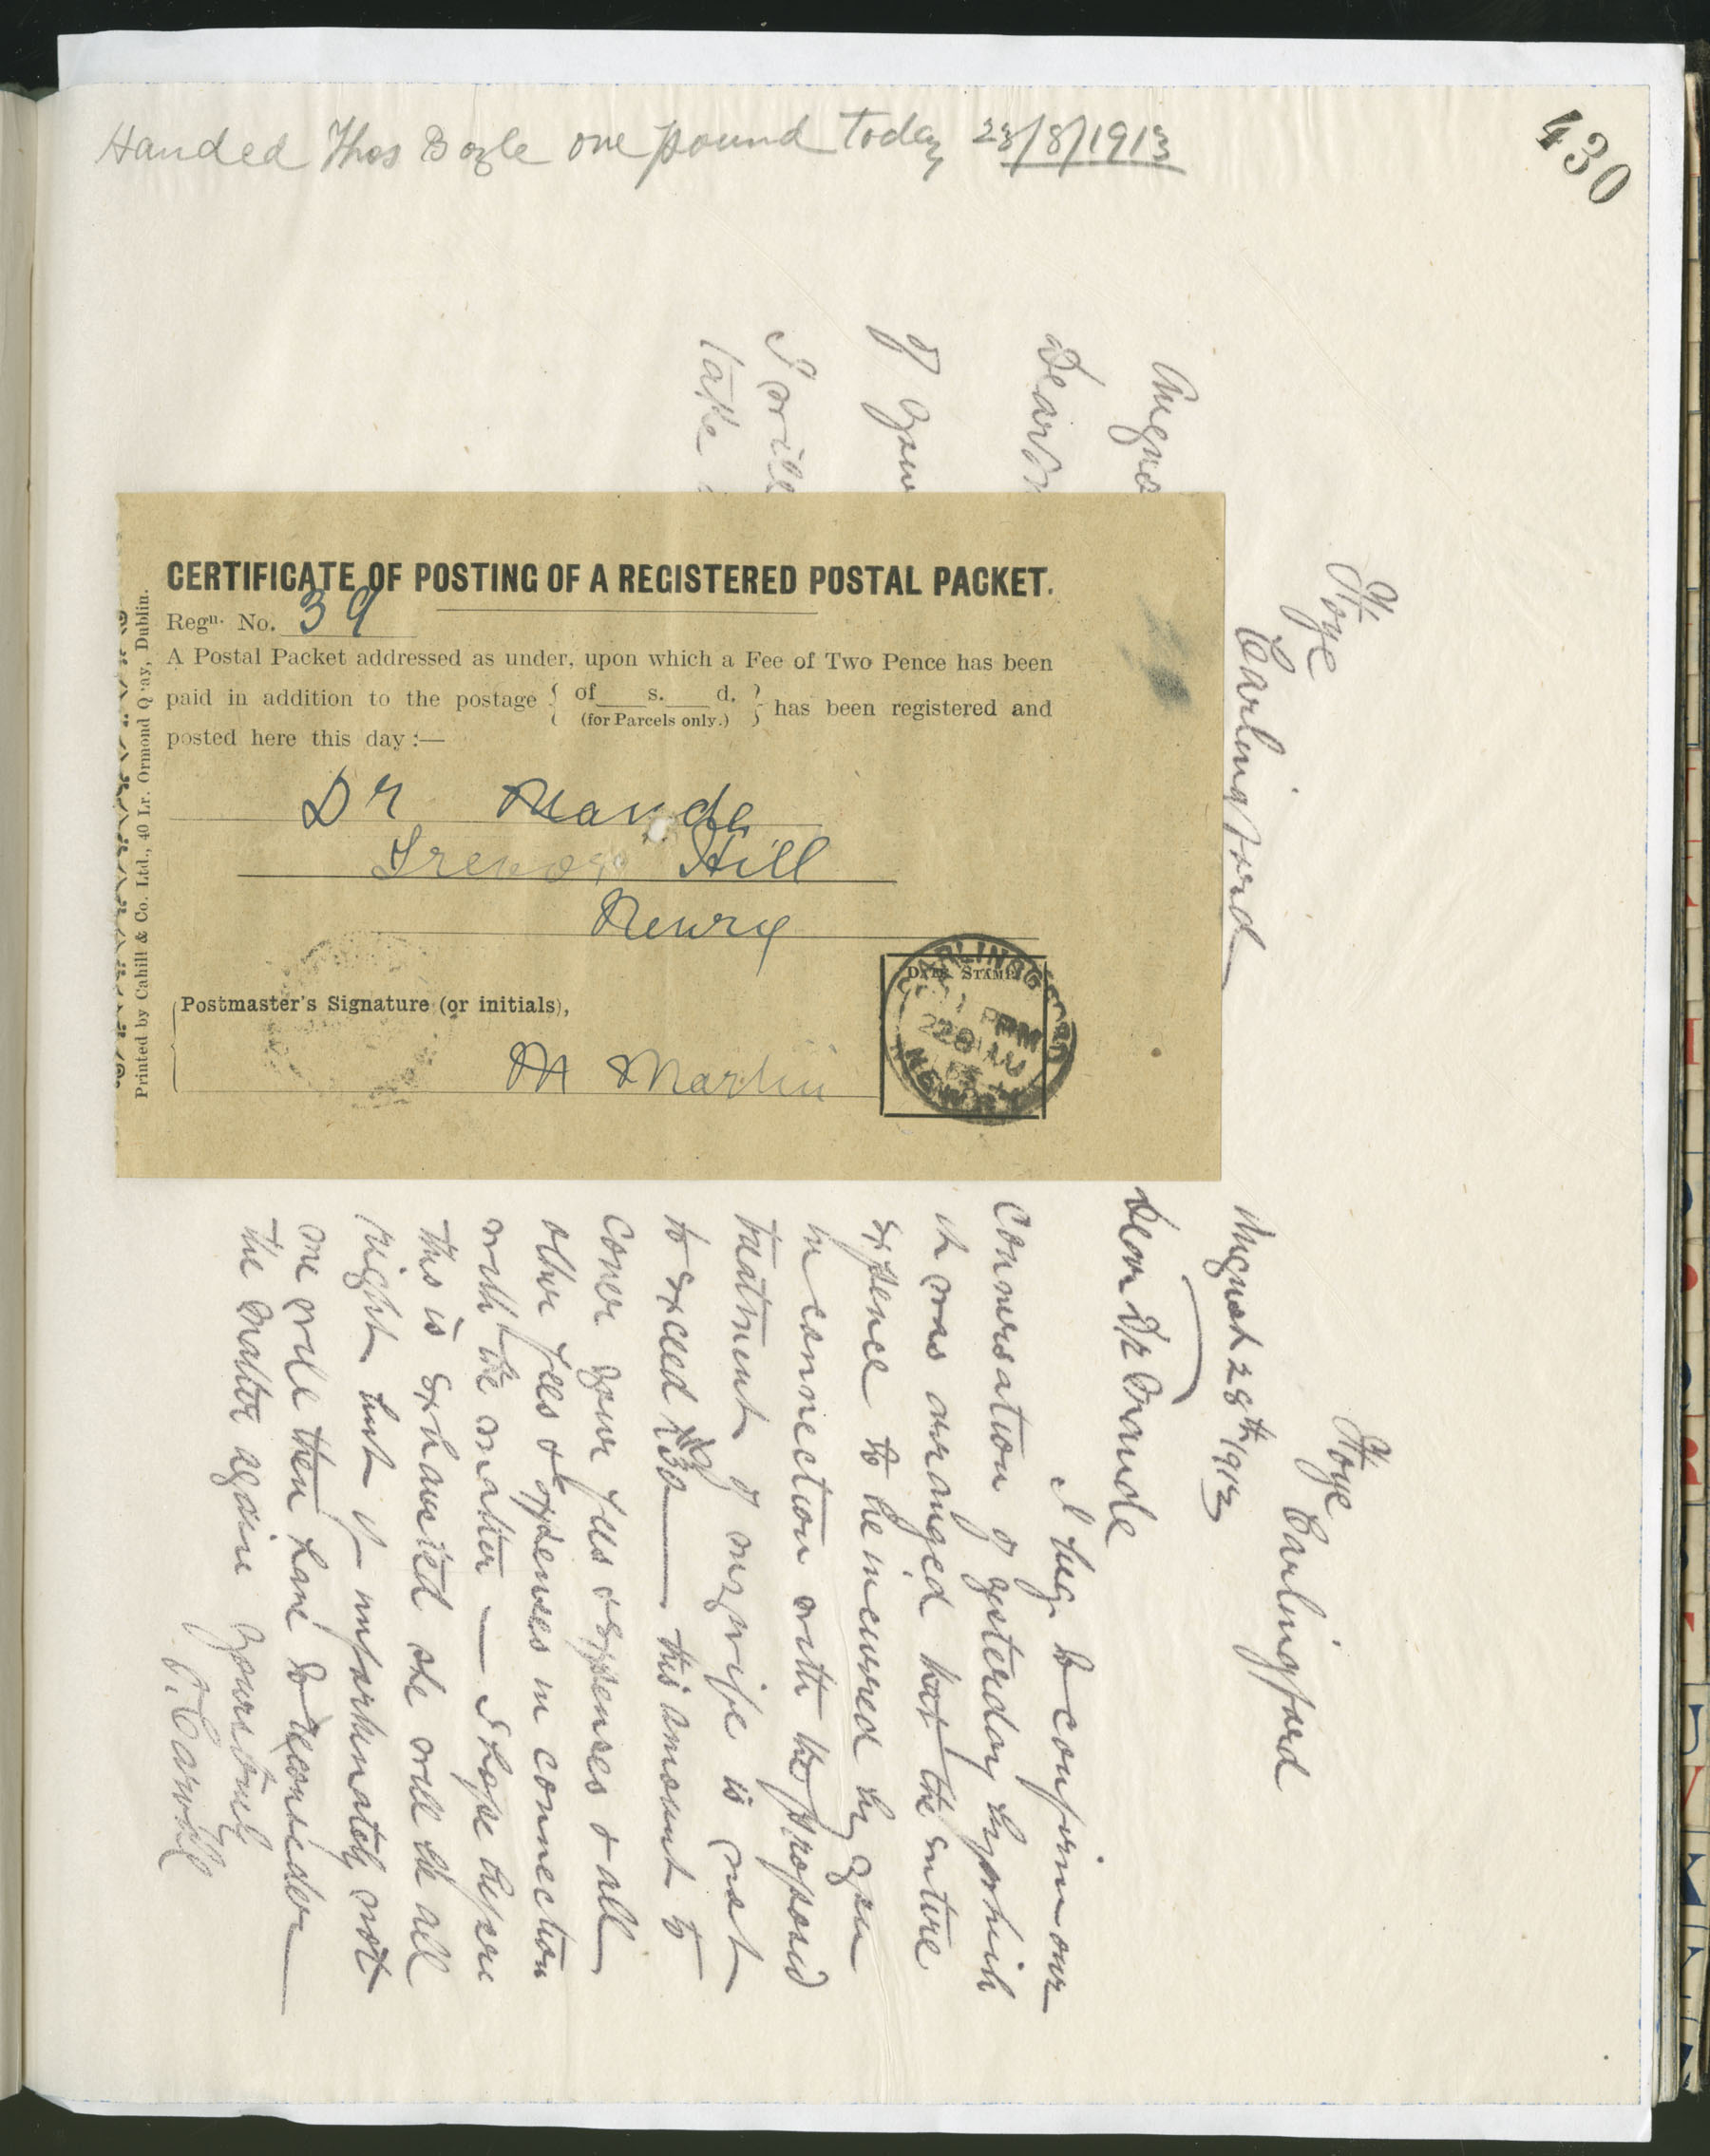 430
Handed Thos Boyle one pound today 23/8/1913
Ghoye
Carlingford
Augus
Dear Dr
of your
I will
take
CERTIFICATE OF POSTING OF A REGISTERED POSTAL PACKET.
Regn. No. 39
A Postal Packet addressed as under, upon which a Fee of Two Pence has been
paid in addition to the postage { of s. d. (for Parcels only.) } has been registered and
posted here this day :—
Dr Maude
Trevor Hill
Newry
Postmaster's Signature (or initials),
M Martin
DATE STAMP
CARLINGFORD
NEWRY
Printed by Cahill & Co. Ltd., 40 Lr. Ormond Quay, Dublin.
Ghoye
Carlingford
August 28th 1913
Dear Dr Maude
I beg to confirm our
conversation of yesterday by which
it was arranged that the entire
expence to be incurred by you
in connection with the proposed
treatment of my wife is not
to exceed £30 — this amount to
cover your fees & expenses & all
other fees & expenses in connection
with the matter — I hope before
this is exhausted she will be all
right but if unfortunately not
we will then have to reconsider
the matter again yours truly